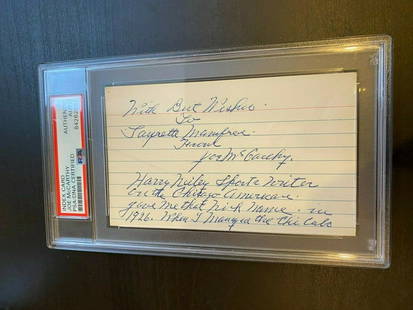 With Best Wishes.
To
From
Joe McCarthy.
Harry Neiley Sports Writer
On the Chicago American.
gave me that Nick Name. in
1926. When I Managed the Chi Cubs
INDEX CARD
JOE McCARTHY
PSA/DNA CERTIFIED
AUTHENTIC
PSA